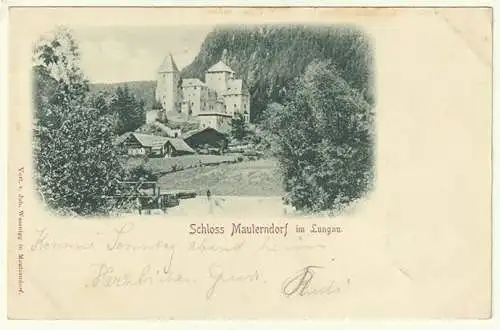 Schloss Mauterndorf im Lungau.
Komme Sonntag abend
Herzlichen Gruß
Verl. v. Joh. Wessnigg in Mauterndorf.